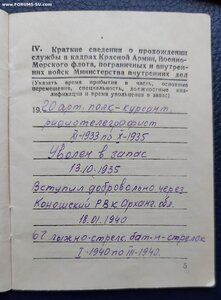 FORUMS-SU.com
IV. Краткие сведения о прохождении
службы в кадрах Красной Армии, Военно-
Морского флота, пограничных и внутрен-
них войск Министерства внутренних дел
(Указать время прибытия в часть, основные
перемещения, специальность, должностные ква-
лификации и время увольнения в запас)
19 20 арт. полк-курсант,
радиотелеграфист
XI-1933 по X-1935
Уволен в запас
13.10.1935
Вступил добровольно через
Коношский РВК Орханг. обл.
18.01.1940
67 лыжно-стрелк. бат-н-стрелок
I-1940 по III-1940.
5